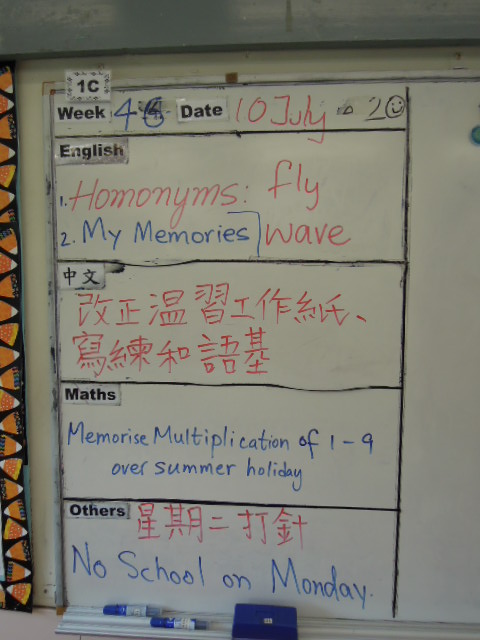 1C
Week 46 Date 10 July
English
1. Homonyms: fly
2. My Memories wave
中文
改正溫習工作紙、
寫練和語基
Maths
Memorise Multiplication of 1-9
over summer holiday
Others 星期二打針
No School on Monday.